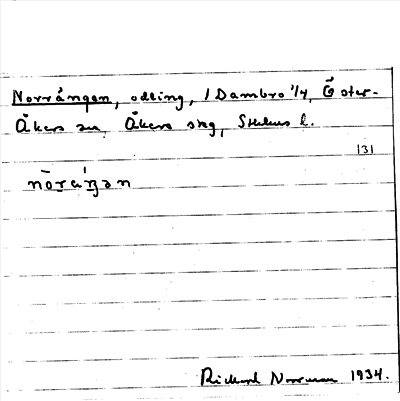 Norrängen, odling, /Dambro 1/4, Öster-
Åkers sn, Åkers skg, Sthlms l.
131
Rickard Norman 1934.